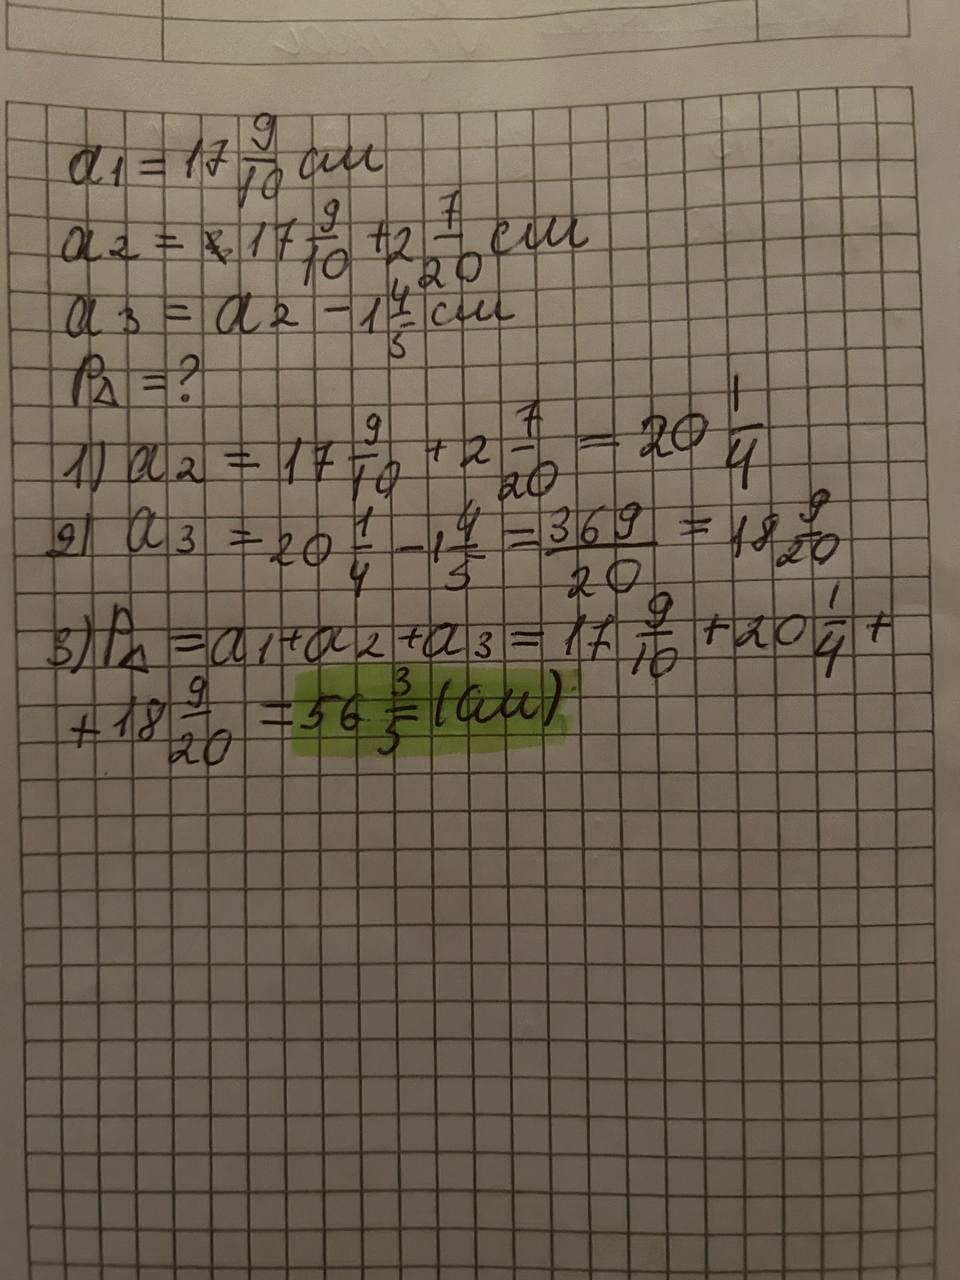 a1 = 17 9/10 см
a2 = 17 9/10 + 2 7/20 см
a3 = a2 - 1 4/5 см
P△ = ?
1) a2 = 17 9/10 + 2 7/20 = 20 1/4
2) a3 = 20 1/4 - 1 4/5 = 369/20 = 18 9/20
3) P△ = a1 + a2 + a3 = 17 9/10 + 20 1/4 +
+ 18 9/20 = 56 3/5 (см)